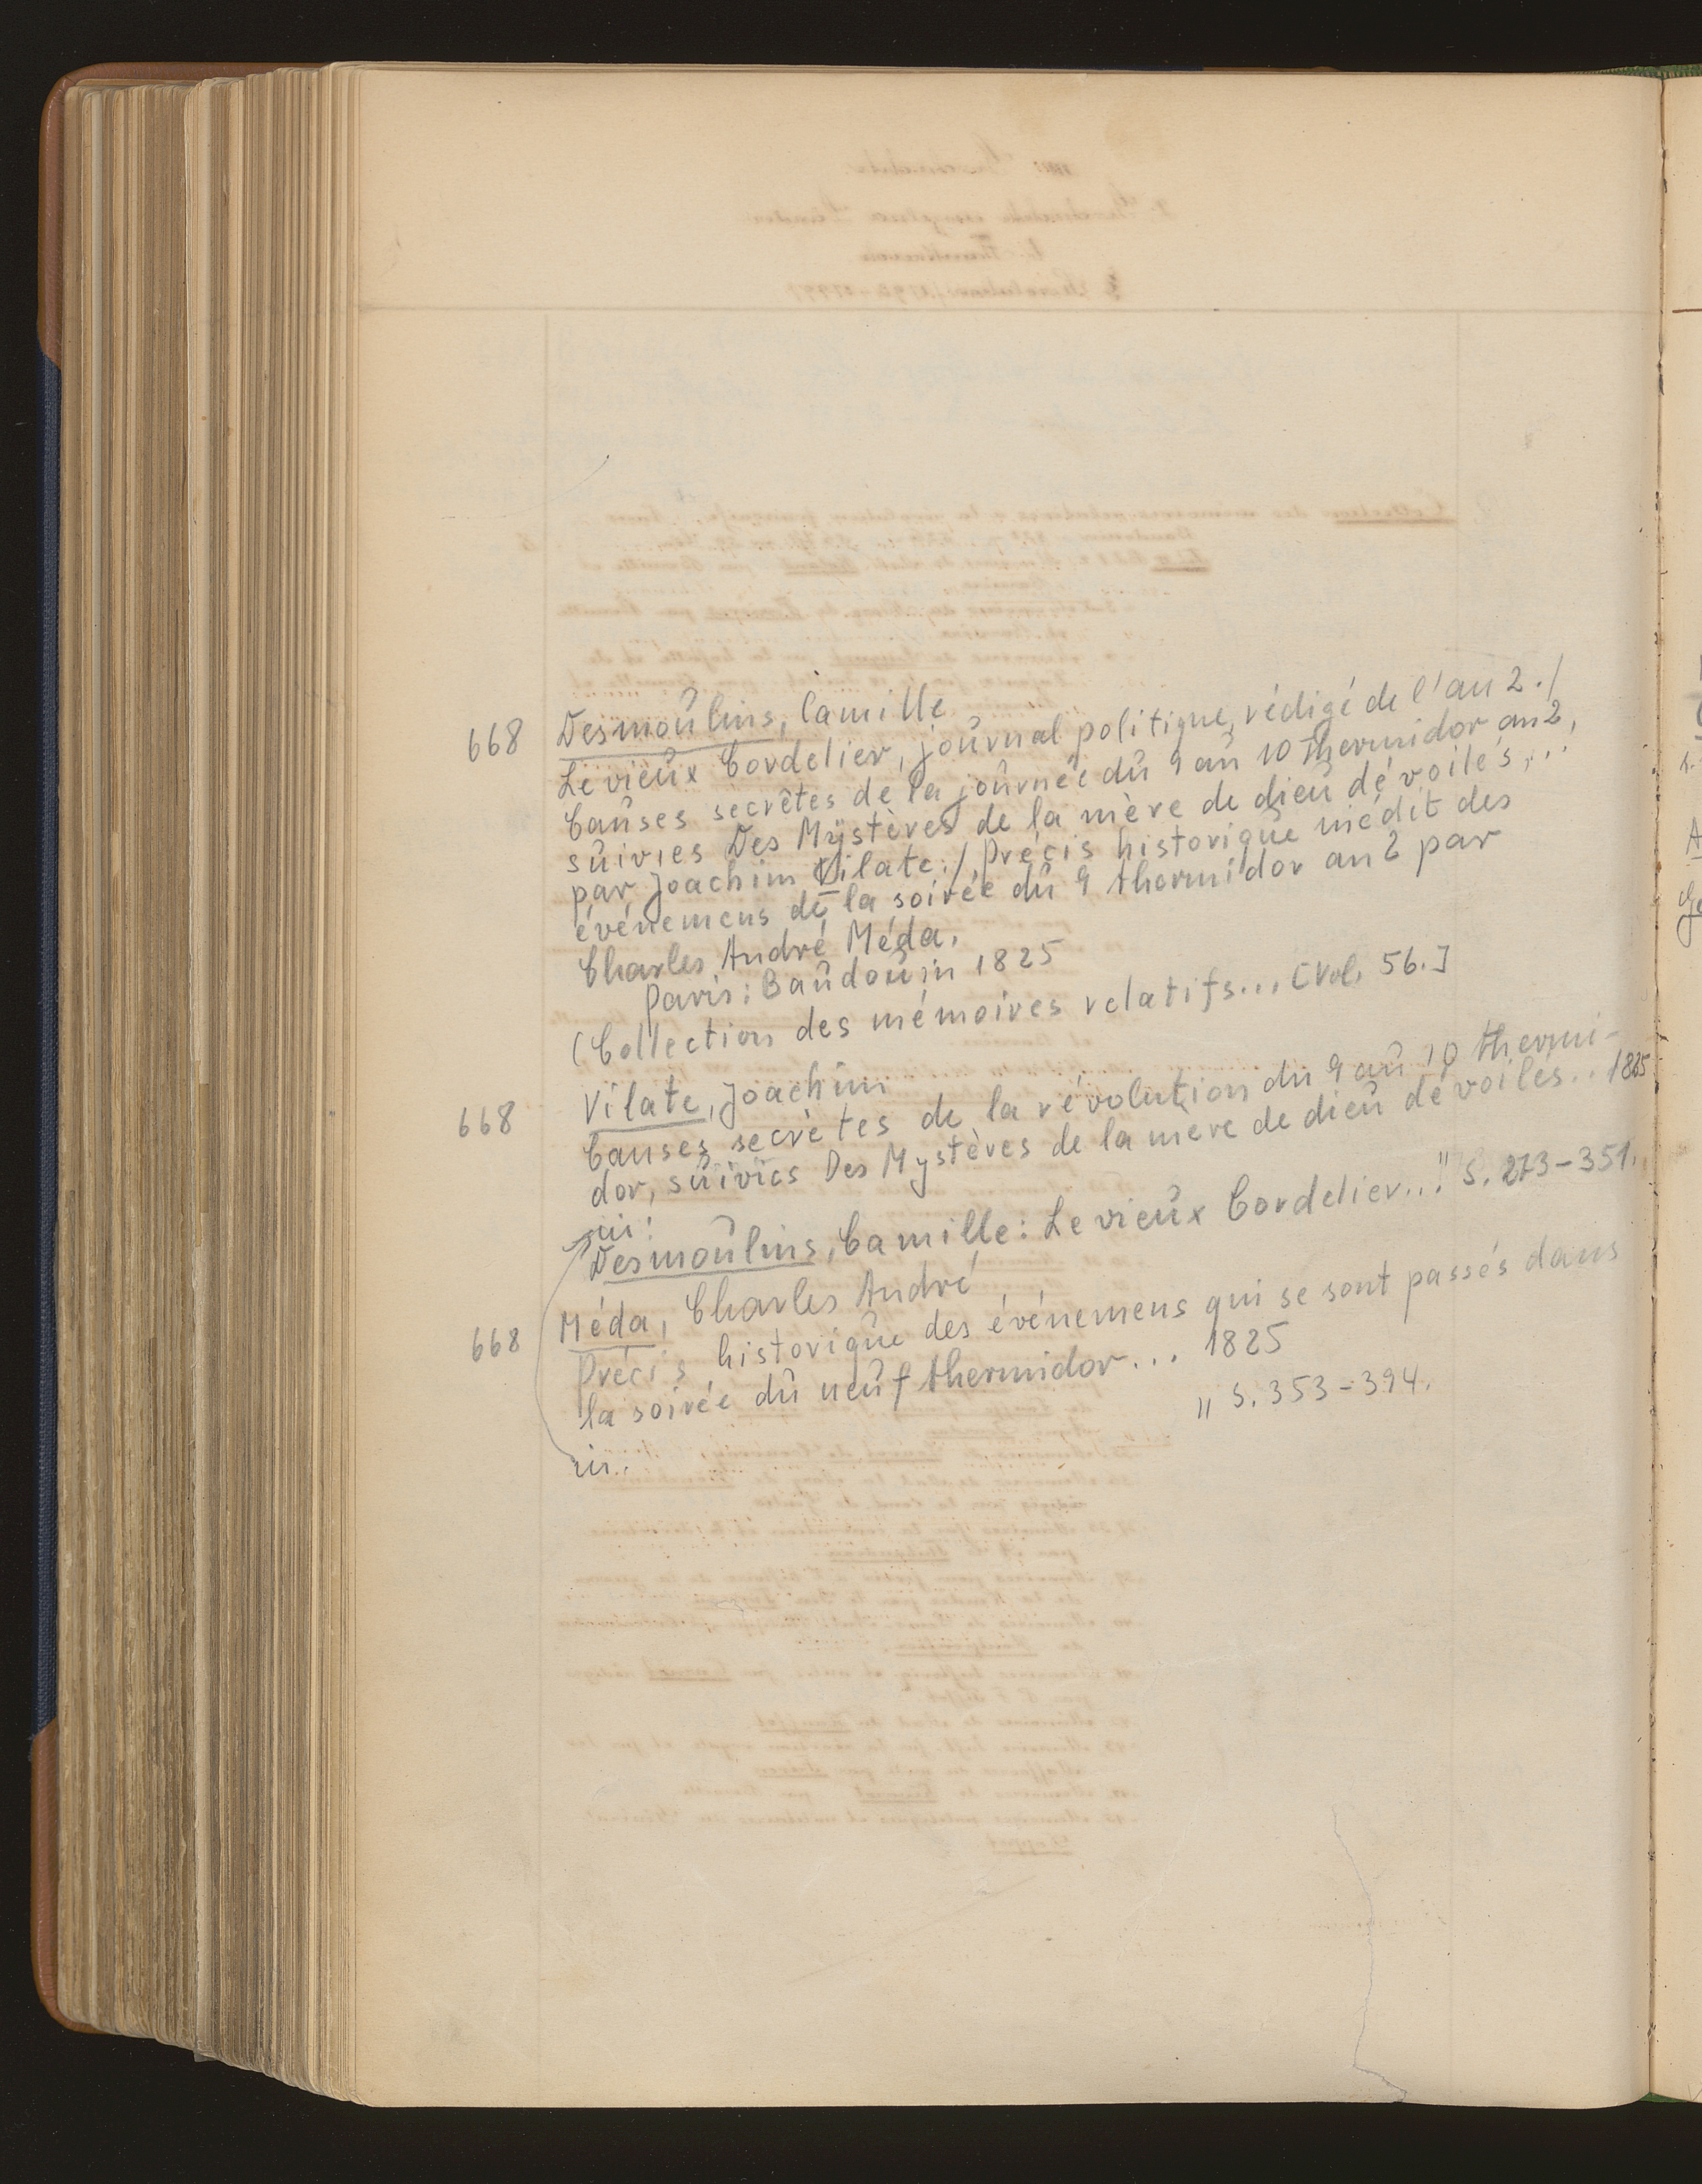 668 Desmoulins, Camille
Le vieux Cordelier, journal politique, rédigé de l'an 2./
Causes secrêtes de la journée du 9 au 10 thermidor an 2,
suivies Des Mystères de la mère de dieu dévoilés,...
par Joachim Vilate./ Précis historique inédit des
événemens de la soirée du 9 thermidor an 2 par
Charles André Méda.
Paris: Baudouin 1825
(Collection des mémoires relatifs... [Vol. 56.]
668 Vilate, Joachim
Causes secrètes de la révolution du 9 au 10 thermi-
dor, suivies Des Mystères de la mère de dieu dévoilés.. 1825
in:
Desmoulins, Camille: Le vieux Cordelier..." S. 273-351.
668 Méda, Charles André
Précis historique des événemens qui se sont passés dans
la soirée du neuf thermidor... 1825
in: " S. 353-394.